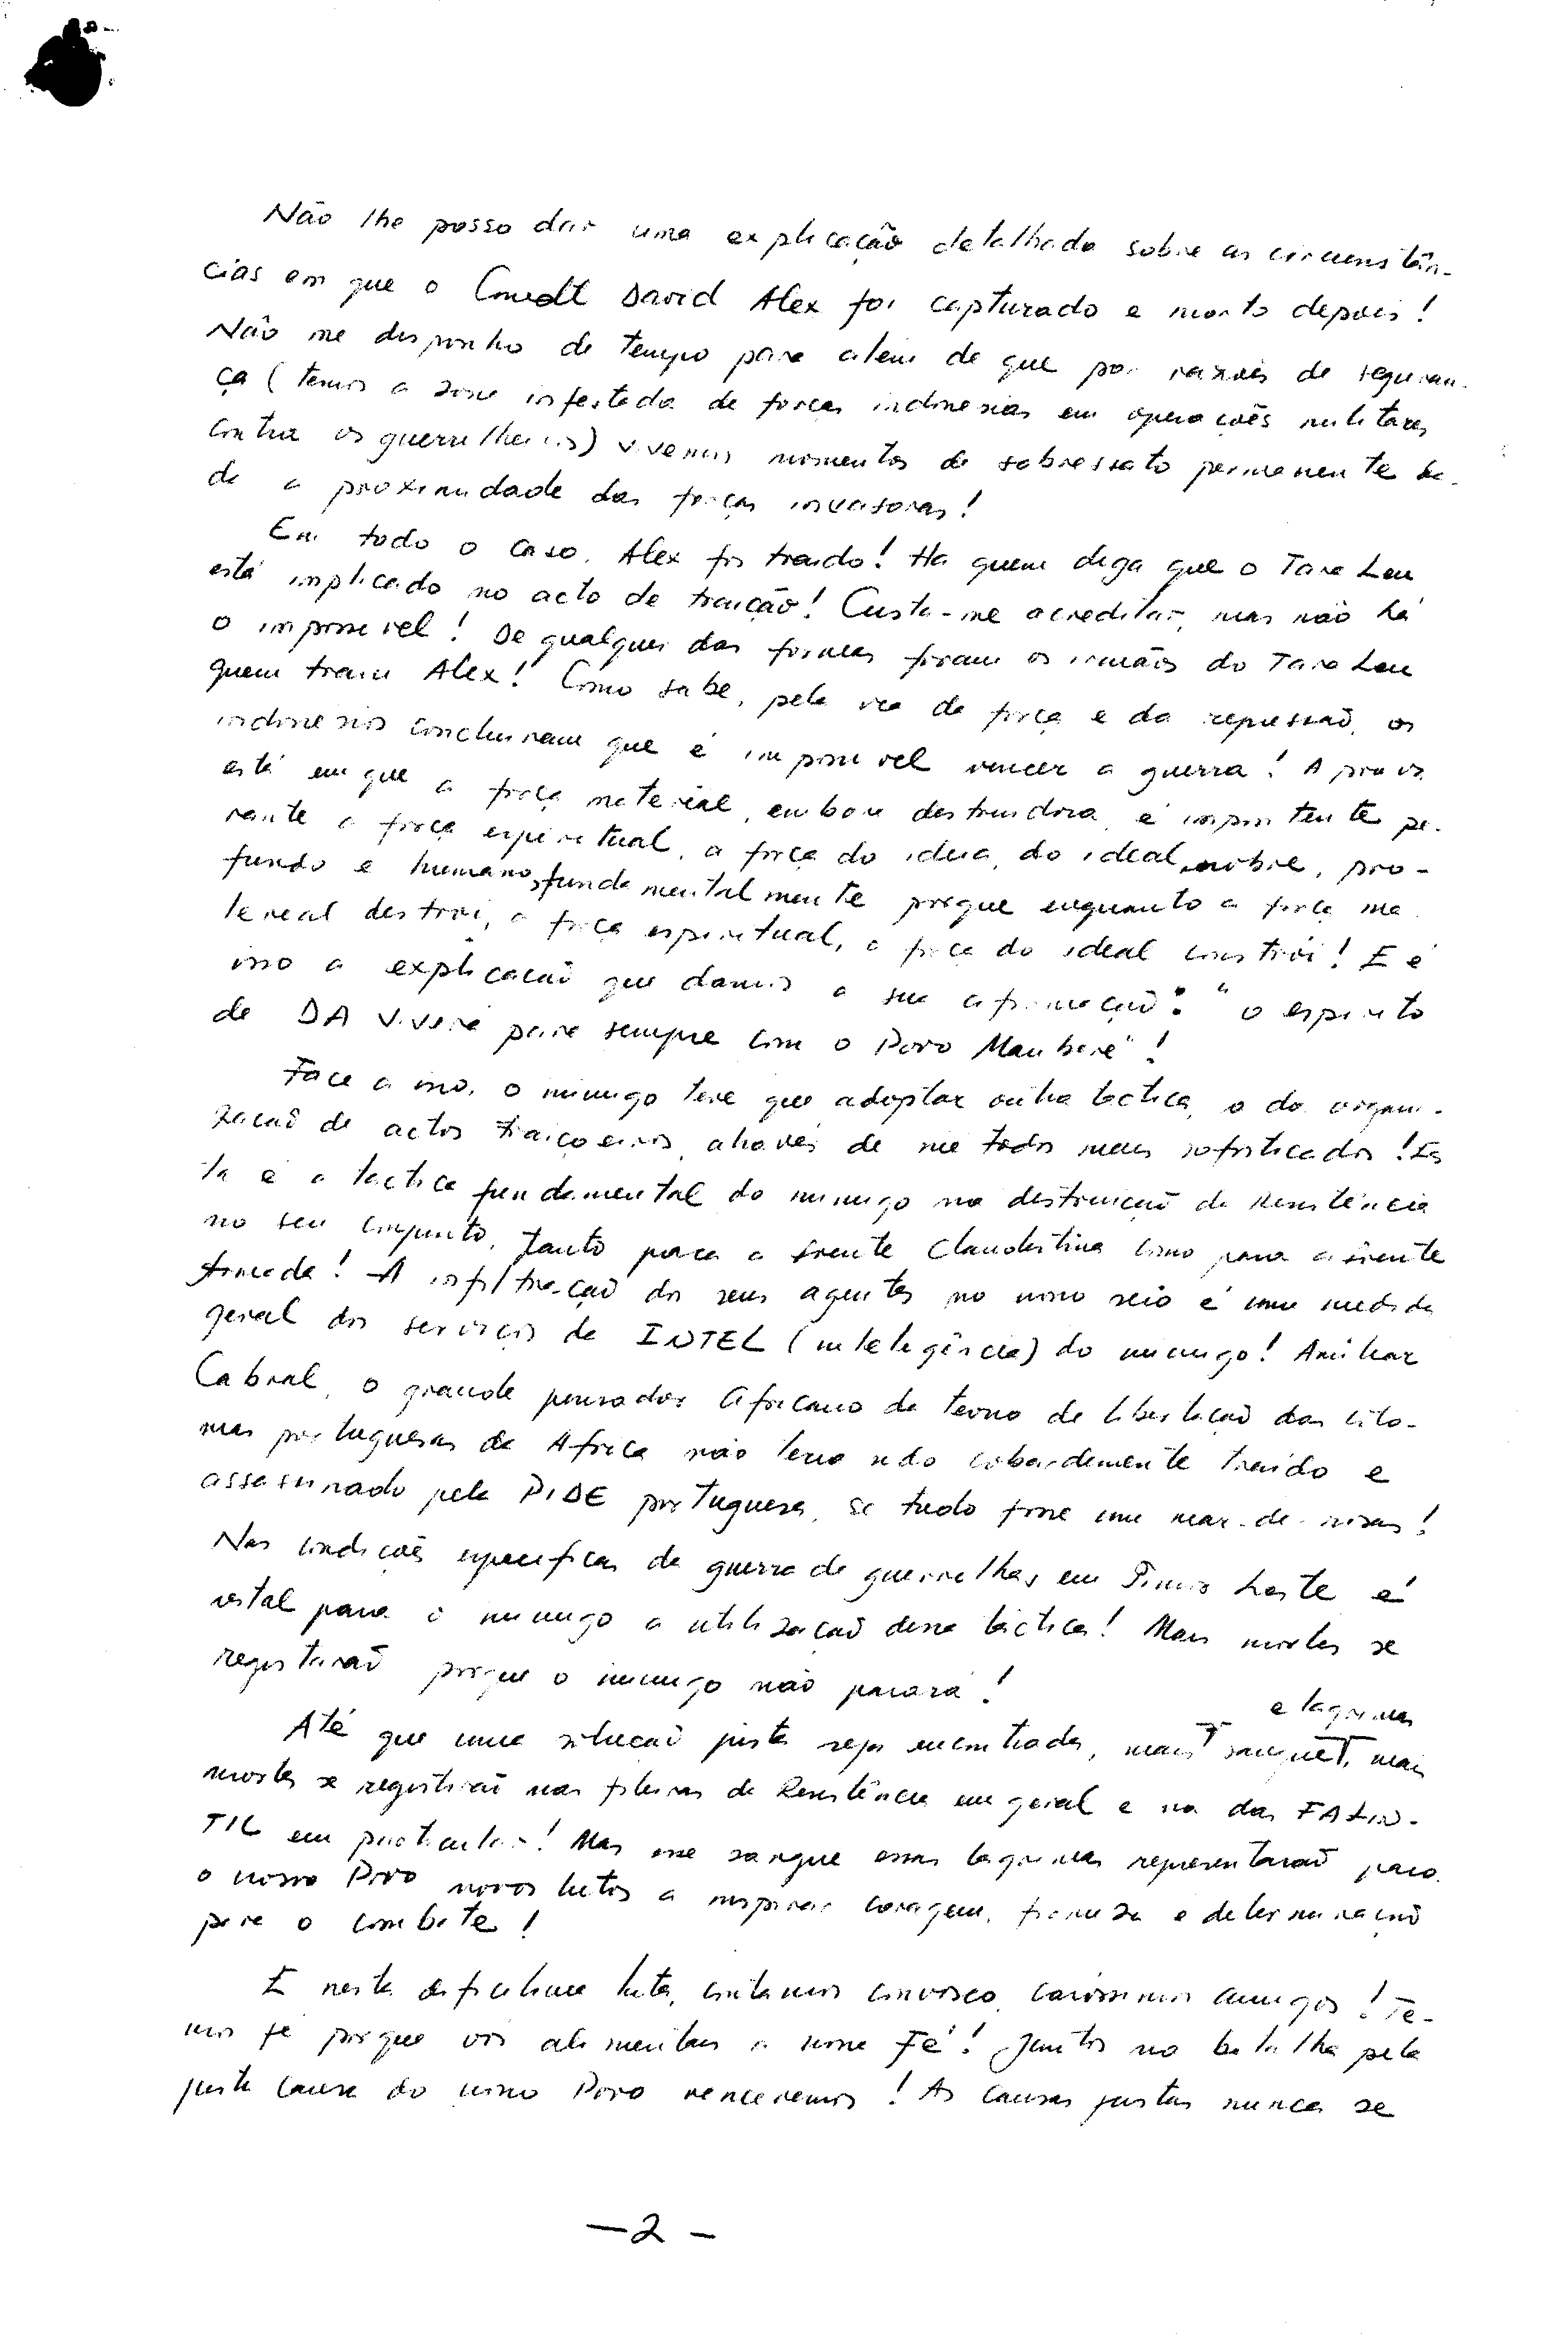 Não lhe posso dar uma explicação detalhada sobre as circunstân-
cias em que o Comdt David Alex foi capturado e morto depois!
Não me disponho de tempo para além de que por razões de seguran-
ça (temos a zona infestada de forças indonésias em operações militares
contra os guerrilheiros) vivemos momentos de sobressalto permanente da-
da a proximidade das forças invasoras!
Em todo o caso, Alex foi traido! Há quem diga que o Tara Leu
está implicado no acto de traição! Custa-me acreditar, mas não há
o impossivel! De qualquer das formas foram os irmãos do Tara Leu
quem traiu Alex! Como sabe, pela via da força e da repressaõ, os
indonesios concluiram que é impossivel vencer a guerra! A prova
está em que a força material, embora destruidora, é impotente pe-
rante a força espiritual, a força da ideia, do ideal nobre, pro-
fundo e humano, fundamentalmente porque enquanto a força ma
terial destroi, a força espiritual, a força do ideal constrói! E é
isso a explicacaõ que damos a sua afirmaçaõ: "o espirito
de DA viverá para sempre com o Povo Maubere"!
Face a isso, o inimigo teve que adoptar outra tactica, a da organi-
zacaõ de actos traiçoeiros, através de metodos mais sofisticados! Es
ta é a tactica fundamental do inimigo na destruiçaõ da Resistência
no seu conjunto, tanto para a frente Clandestina como para a frente
Armada! A infiltraçaõ dos seus agentes no nosso seio é uma medida
geral dos serviços de INTEL (inteligência) do inimigo! Amilcar
Cabral, o grande pensador Africano da teoria de libertaçaõ das colo-
nias portuguesas de Africa não teria sido cobardemente traido e
assassinado pela PIDE portuguesa, se tudo fosse um mar-de-rosas!
Nas condições especificas da guerra de guerrilhas em Timor Leste é
vital para o inimigo a utilizaçaõ dessa táctica! Mais mortes se
registaraõ porque o inimigo não parará!
e lagrimas
Até que uma soluçaõ justa seja encontrada, mais sangue, mais
mortes se registaraõ nas fileiras da Resistência em geral e na das FALIN-
TIL em particular! Mas esse sangue essas lagrimas representaraõ para
o nosso Povo novos lutos a inspirar coragem, firmeza e determinaçaõ
para o combate!
E nesta dificilima luta, contamos convosco, carissimos amigos! Te-
mos fé porque vós alimentais a nossa Fé! Juntos na batalha pela
justa causa do nosso Povo venceremos! As causas justas nunca se
- 2 -